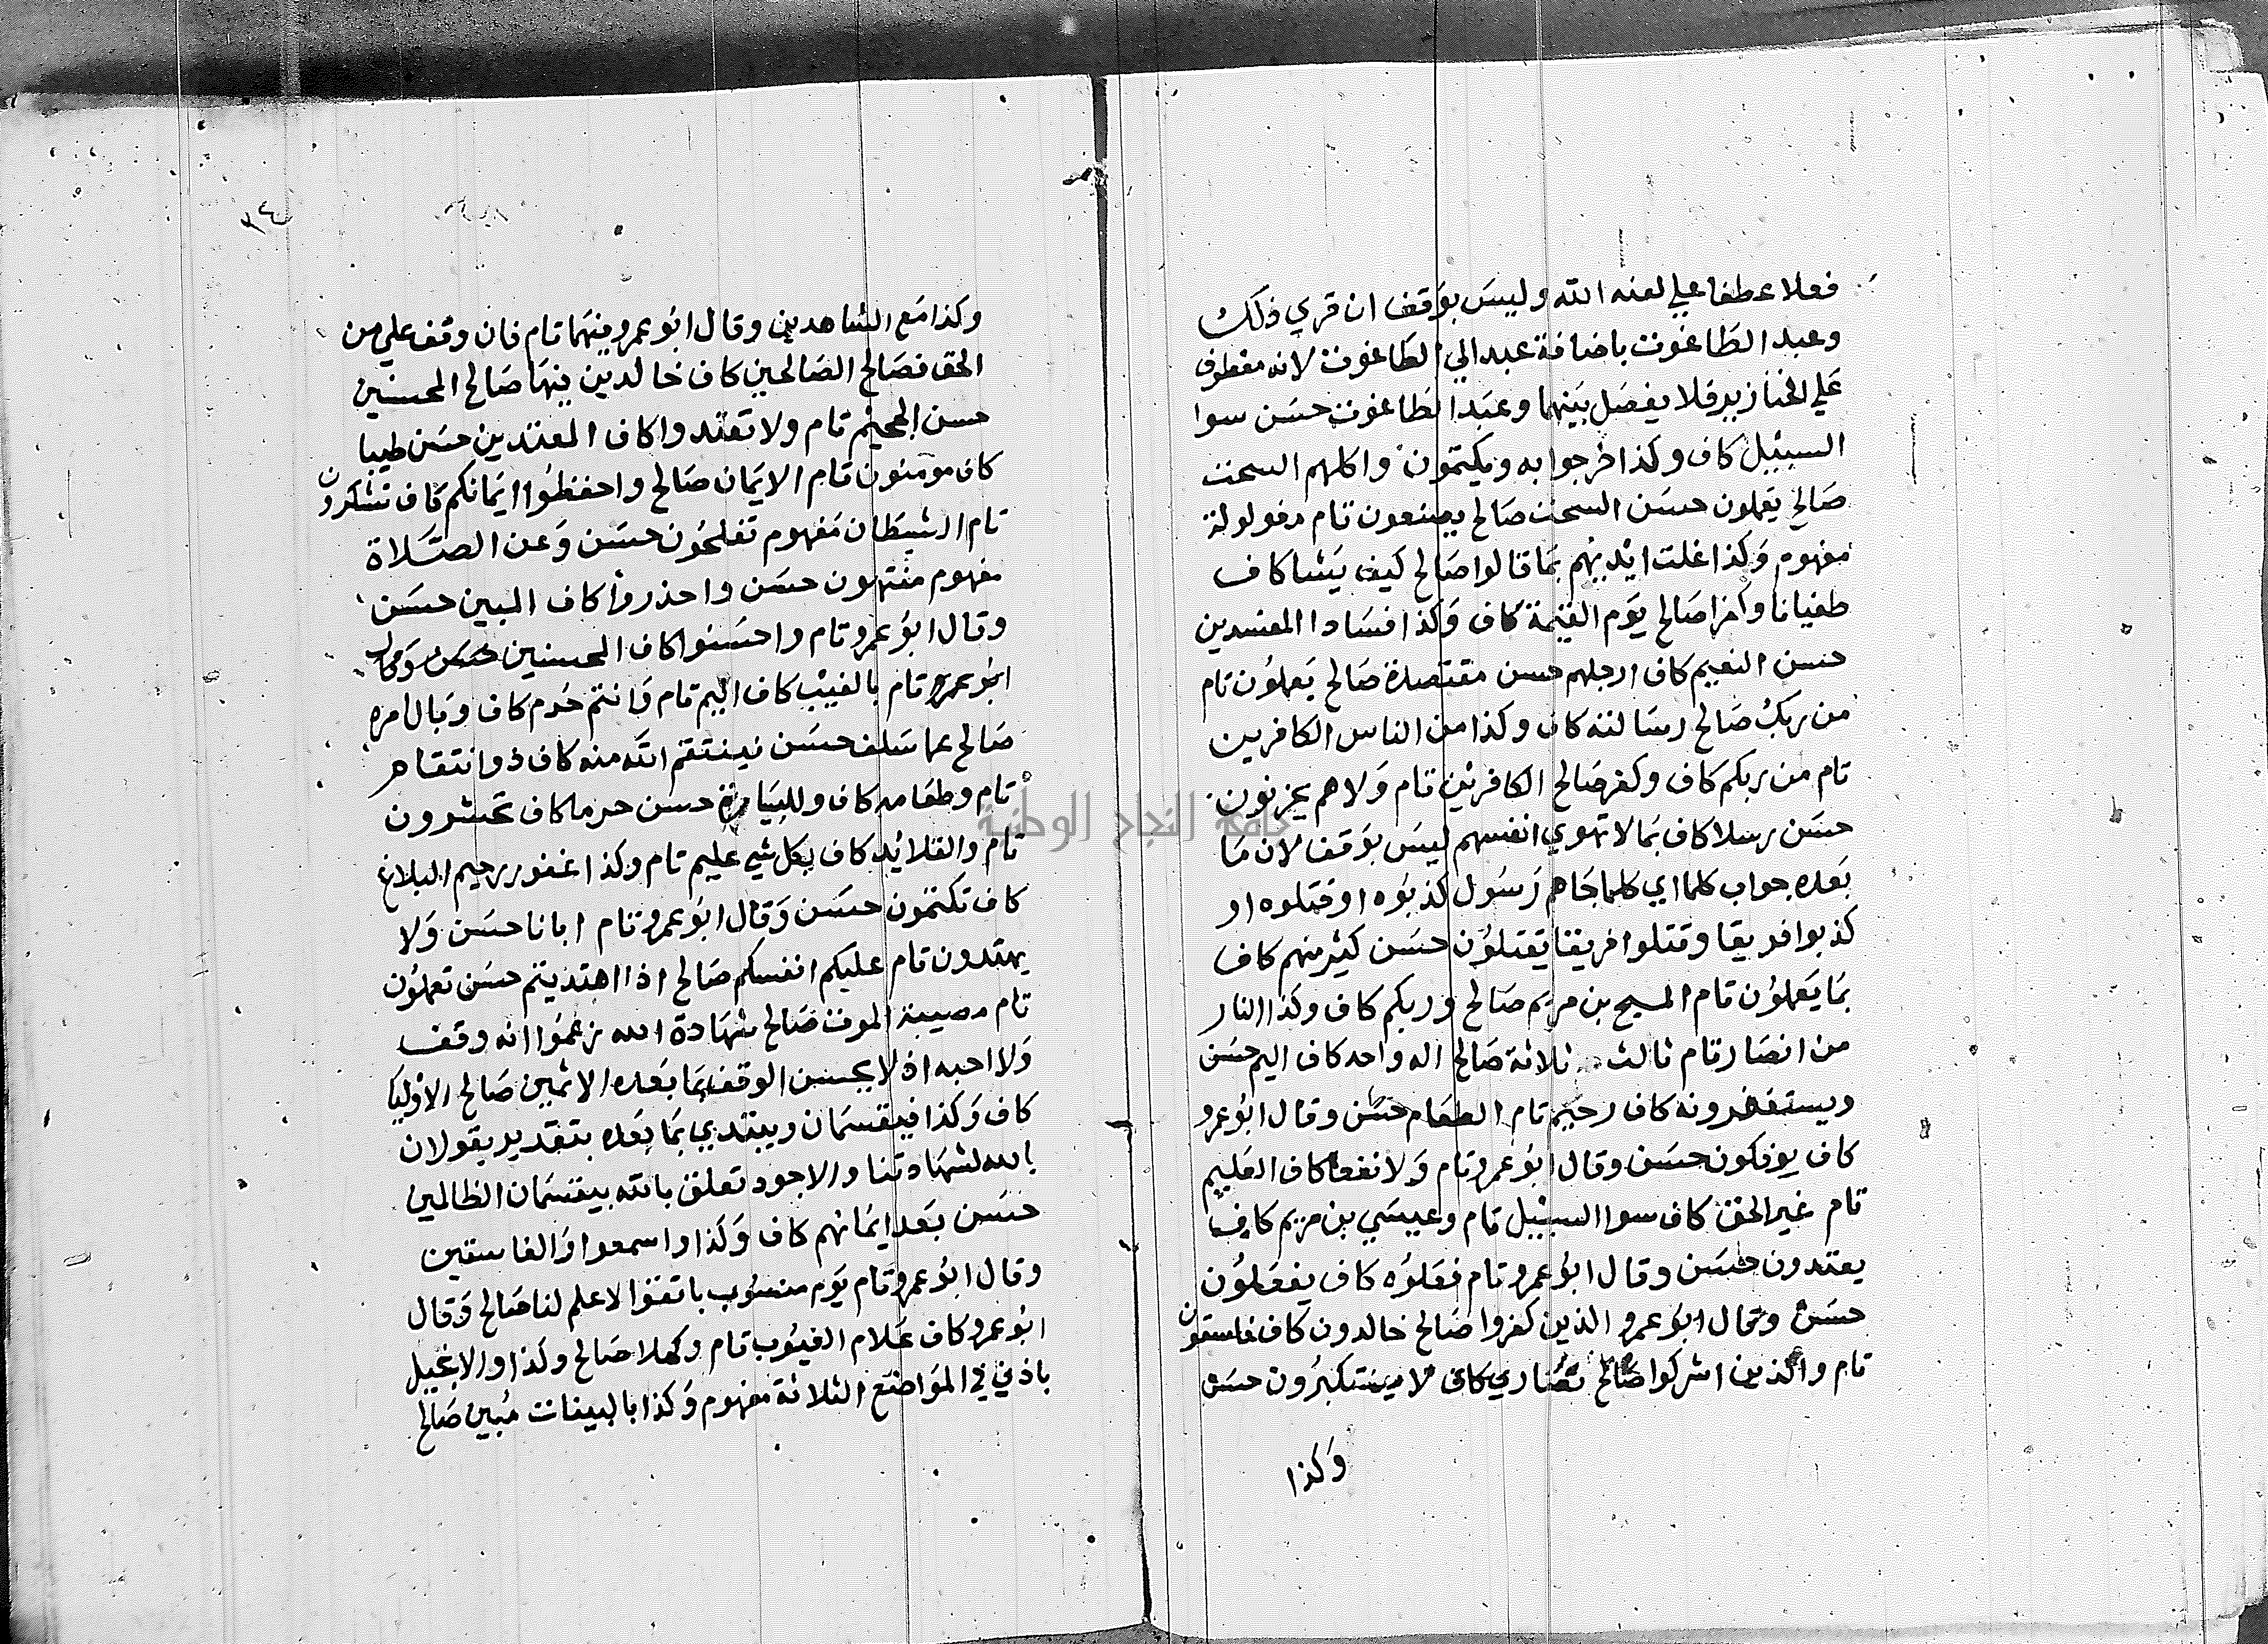 فعلا عطفا علي لعنه الله وليس بوقف ان قري ذلك
وعبد الطاغوت باضافة عبد الي الطاغوت لانه معطوف
علي الخنازير فلا يفصل بينهما وعبد الطاغوت حسن سوا
السبيل كاف وكذا خرجوا به ويكتمون واكلهم السحت
صالح يعملون حسن السحت صالح يصنعون تام مغلولة
مفهوم وكذا غلت ايديهم بما قالوا صالح كيف يشا كاف
طغيانا وكفرا صالح يوم القيمة كاف وكذا فسادا المفسدين
حسن النعيم كاف ارجلهم حسن مقتصدة صالح يعملون تام
من ربك صالح رسالته كاف وكذا من الناس الكافرين
تام من ربكم كاف وكفر صالح الكافرين تام ولا هم يحزنون
حسن رسلا كاف بما لا تهوي انفسهم ليس بوقف لان ما
بعده جواب كلما اي كلما جاهم رسول كذبوه او قتلوه او
كذبوا فريقا وقتلوا فريقا يقتلون حسن كثير منهم كاف
بما يعملون تام المسيح بن مريم صالح وربكم كاف وكذا النار
من انصار تام ثالث ثلاثة صالح اله واحد كاف اليم حسن
ويستغفرونه كاف رحيم تام الطعام حسن وقال ابو عمرو
كاف يوفكون حسن وقال ابو عمرو تام ولا نفعا كاف العليم
تام غير الحق كاف سوا السبيل تام وعيسي بن مريم كاف
يعتدون حسن وقال ابو عمرو تام فعلوه كاف يفعلون
حسن وقال ابو عمرو الذين كفروا صالح خالدون كاف فاسقون
تام والذين اشركوا صالح نصاري كاف لا يستكبرون حسن
وكذا
٣٤
وكذا مع الشاهدين وقال ابو عمرو فيهما تام فان وقف علي من
الحق فصالح الصالحين كاف خالدين فيها صالح المحسنين
حسن الجحيم تام ولا تعتدوا كاف المعتدين حسن طيبا
كاف مومنون تام الايمان صالح واحفظوا ايمانكم كاف تشكرون
تام الشيطان مفهوم تفلحون حسن وعن الصلاة
مفهوم منتهون حسن واحذروا كاف المبين حسن
وقال ابو عمرو تام واحسنوا كاف المحسنين حسن وقال
ابو عمرو تام بالغيب كاف اليم تام وانتم حرم كاف وبال امره
صالح عما سلف حسن فينتقم الله منه كاف ذو انتقام
تام وطعامه كاف وللسيارة حسن حرما كاف تحشرون
تام والقلائد كاف بكل شي عليم تام وكذا غفور رحيم البلاغ
كاف تكتمون حسن وقال ابو عمرو تام ابانا حسن ولا
يهتدون تام عليكم انفسكم صالح اذا اهتديتم حسن تعملون
تام مصيبة الموت صالح شهادة الله زعموا انه وقف
ولا احبه اذ لا يحسن الوقف بما بعده الاثمين صالح الاوليا
كاف وكذا فيقسمان ويبتدي بما بعده بتقدير يقولان
بالله لشهادتنا والاجود تعلق بالله بيقسمان الظالمين
حسن بعد ايمانهم كاف وكذا واسمعوا والفاسقين
وقال ابو عمرو تام يوم منصوب باتقوا لا علم لنا صالح وقال
ابو عمرو كاف علام الغيوب تام وكهلا صالح وكذا والانجيل
باذني في المواضع الثلاثة مفهوم وكذا بالبينات مبين صالح
جامعة النجاح الوطنية